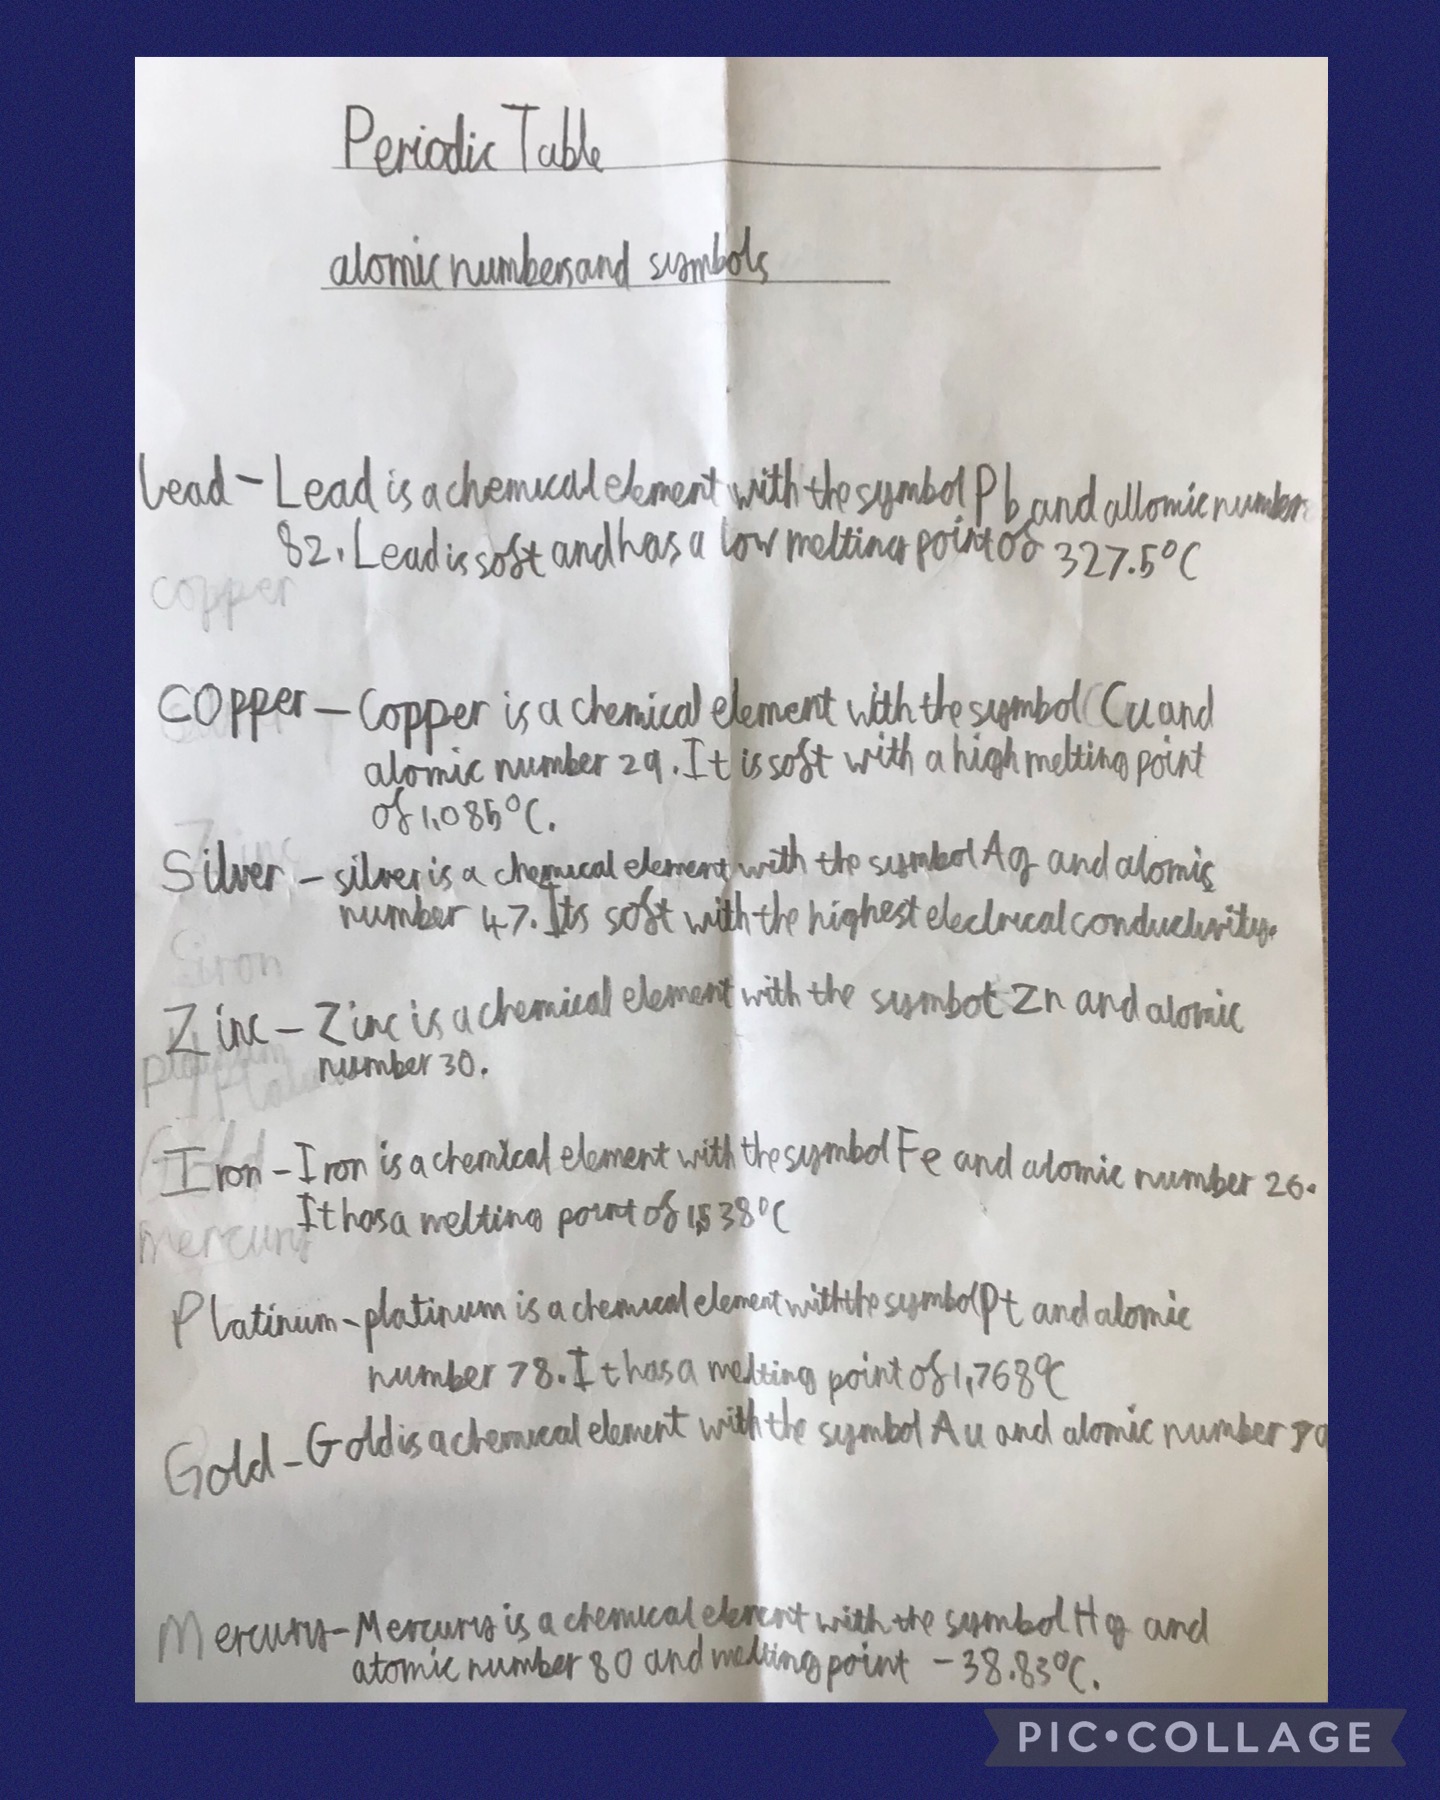 Periodic Table
atomic numbers and symbols
Lead - Lead is a chemical element with the symbol Pb and attomic number
82. Lead is soft and has a low melting point of 327.5°C
copper
Copper - Copper is a chemical element with the symbol Cu and
atomic number 29. It is soft with a high melting point
of 1,085°C.
Zinc
Silver - silver is a chemical element with the symbol Ag and atomic
number 47. Its soft with the highest electrical conductivity.
iron
Zinc - Zinc is a chemical element with the symbol Zn and atomic
number 30.
Gold
Iron - Iron is a chemical element with the symbol Fe and atomic number 26.
It has a melting point of 1,538°C
mercury
Platinum - platinum is a chemical element with the symbol Pt and atomic
number 78. It has a melting point of 1,768°C
Gold - Gold is a chemical element with the symbol Au and atomic number
Mercury - Mercury is a chemical element with the symbol Hg and
atomic number 80 and melting point -38.83°C.
PIC•COLLAGE